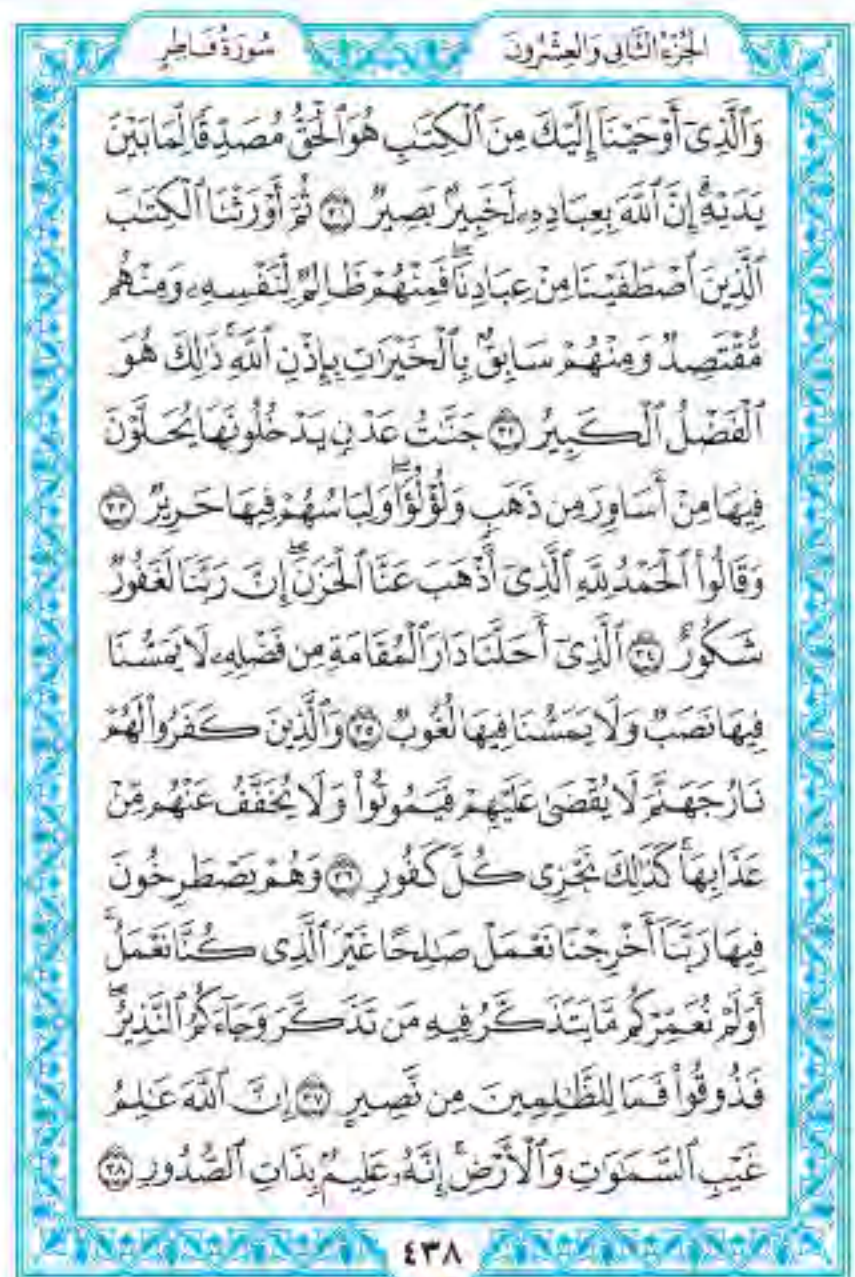 الجُزْءُ الثَّانِي وَالعِشْرُونَ
سُورَةُ فَاطِرٍ
وَٱلَّذِىٓ أَوْحَيْنَآ إِلَيْكَ مِنَ ٱلْكِتَـٰبِ هُوَ ٱلْحَقُّ مُصَدِّقًا لِّمَا بَيْنَ
يَدَيْهِ ۗ إِنَّ ٱللَّهَ بِعِبَادِهِۦ لَخَبِيرٌۢ بَصِيرٌ ٣١ ثُمَّ أَوْرَثْنَا ٱلْكِتَـٰبَ
ٱلَّذِينَ ٱصْطَفَيْنَا مِنْ عِبَادِنَا ۖ فَمِنْهُمْ ظَالِمٌ لِّنَفْسِهِۦ وَمِنْهُم
مُّقْتَصِدٌ وَمِنْهُمْ سَابِقٌۢ بِٱلْخَيْرَٰتِ بِإِذْنِ ٱللَّهِ ۚ ذَٰلِكَ هُوَ
ٱلْفَضْلُ ٱلْكَبِيرُ ٣٢ جَنَّـٰتُ عَدْنٍ يَدْخُلُونَهَا يُحَلَّوْنَ
فِيهَا مِنْ أَسَاوِرَ مِن ذَهَبٍ وَلُؤْلُؤًا ۖ وَلِبَاسُهُمْ فِيهَا حَرِيرٌ ٣٣
وَقَالُوا۟ ٱلْحَمْدُ لِلَّهِ ٱلَّذِىٓ أَذْهَبَ عَنَّا ٱلْحَزَنَ ۖ إِنَّ رَبَّنَا لَغَفُورٌ
شَكُورٌ ٣٤ ٱلَّذِىٓ أَحَلَّنَا دَارَ ٱلْمُقَامَةِ مِن فَضْلِهِۦ لَا يَمَسُّنَا
فِيهَا نَصَبٌ وَلَا يَمَسُّنَا فِيهَا لُغُوبٌ ٣٥ وَٱلَّذِينَ كَفَرُوا۟ لَهُمْ
نَارُ جَهَنَّمَ لَا يُقْضَىٰ عَلَيْهِمْ فَيَمُوتُوا۟ وَلَا يُخَفَّفُ عَنْهُم مِّنْ
عَذَابِهَا ۚ كَذَٰلِكَ نَجْزِى كُلَّ كَفُورٍ ٣٦ وَهُمْ يَصْطَرِخُونَ
فِيهَا رَبَّنَآ أَخْرِجْنَا نَعْمَلْ صَـٰلِحًا غَيْرَ ٱلَّذِى كُنَّا نَعْمَلُ ۚ
أَوَلَمْ نُعَمِّرْكُم مَّا يَتَذَكَّرُ فِيهِ مَن تَذَكَّرَ وَجَآءَكُمُ ٱلنَّذِيرُ ۖ
فَذُوقُوا۟ فَمَا لِلظَّـٰلِمِينَ مِن نَّصِيرٍ ٣٧ إِنَّ ٱللَّهَ عَـٰلِمُ
غَيْبِ ٱلسَّمَـٰوَٰتِ وَٱلْأَرْضِ ۚ إِنَّهُۥ عَلِيمٌۢ بِذَاتِ ٱلصُّدُورِ ٣٨
٤٣٨